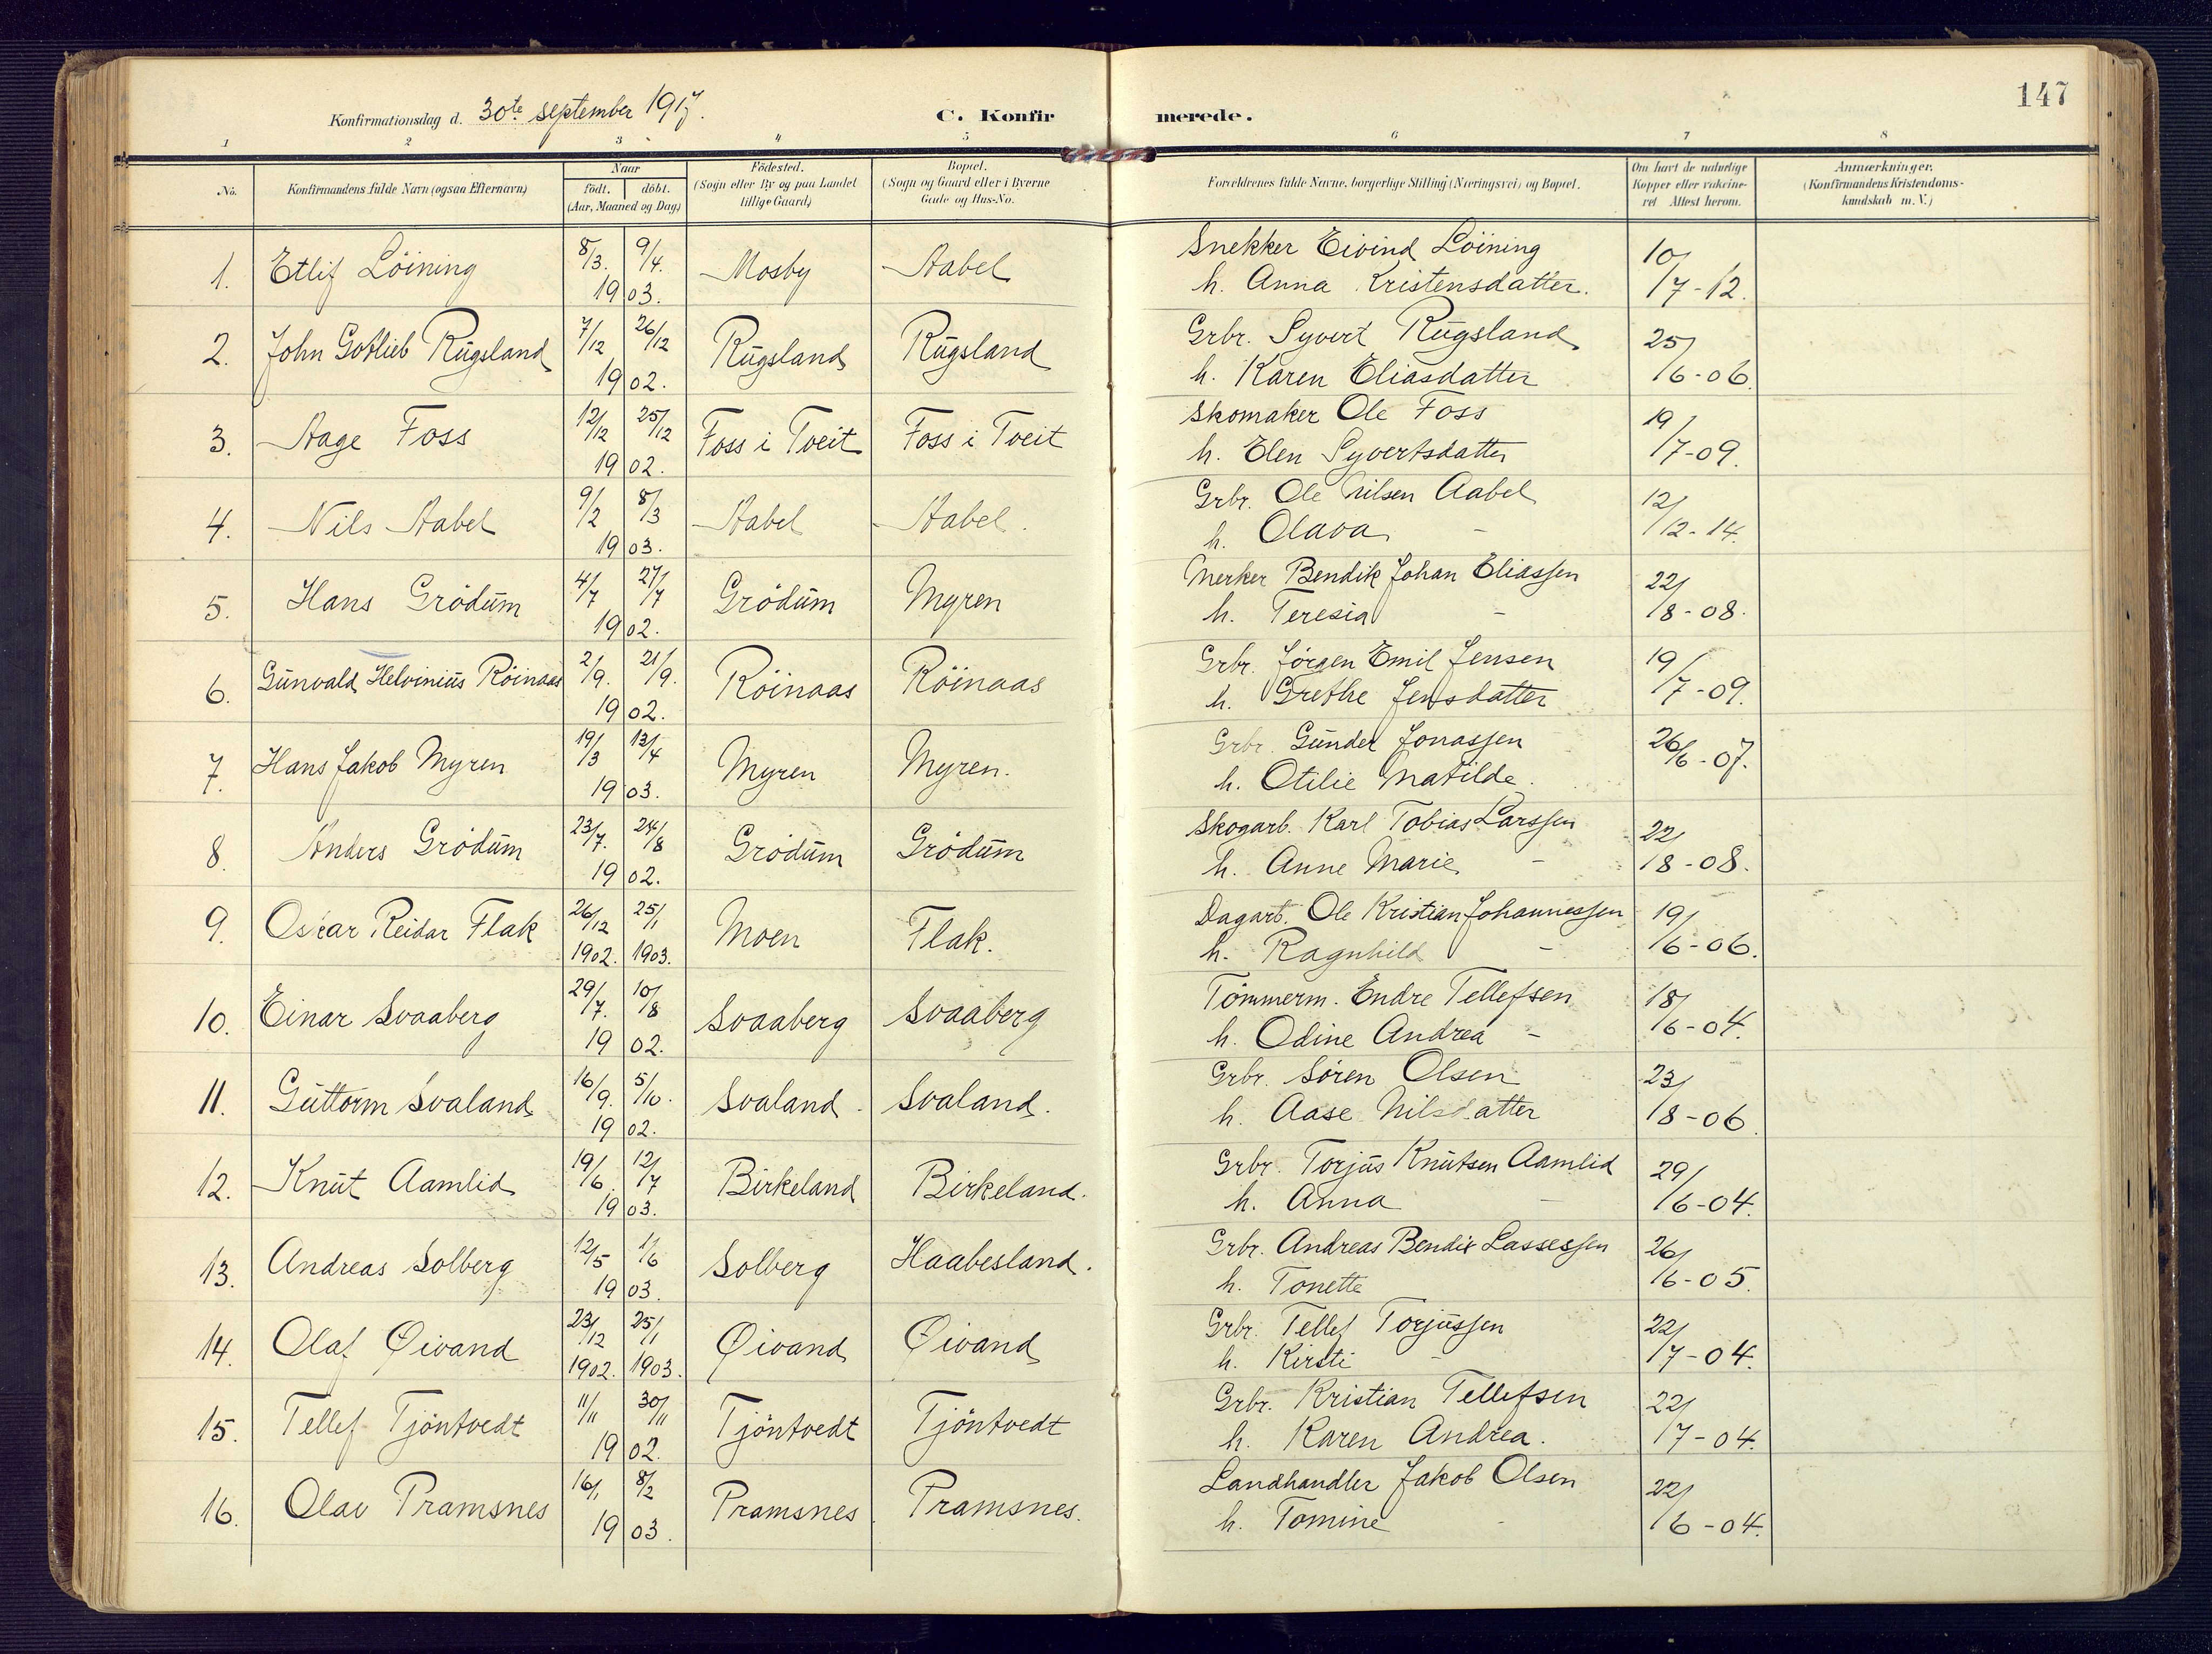 147
Konfirmationsdag d. 30te september 1917.
C. Konfirmerede.
1 2 3 4 5 6 7 8
No.
Konfirmandens fulde Navn (ogsaa Efternavn)
Naar
födt. döbt.
(Aar, Maaned og Dag)
Födested.
(Sogn eller By og paa Landet
tillige Gaard)
Bopæl.
(Sogn og Gaard eller i Byerne
Gade og Hus-No.
Forældrenes fulde Navne, borgerlige Stilling (Næringsvei) og Bopæl.
Om havt de naturlige
Kopper eller vakcine-
ret Attest herom.
Anmærkninger.
(Konfirmandens Kristendoms-
kundskab m. V.)
1. Etlif Löining 8/3. 9/4. 1903. Mosby Aabel Snekker Eivind Löining 10/7-12.
h. Anna Kristensdatter.
2. John Gotlieb Rugsland 7/12 26/12 1902. Rugsland Rugsland Grbr. Syvert Rugsland 25/6-06.
h. Karen Eliasdatter
3. Aage Foss 12/12 25/12 1902. Foss i Tveit Foss i Tveit Skomaker Ole Foss 19/7-09.
h. Elen Syvertsdatter
4. Nils Aabel 9/2 8/3 1903. Aabel Aabel. Grbr. Ole Nilsen Aabel 12/12-14.
h. Olava -
5. Hans Grödum 4/7 27/7 1902. Grödum Myren Merker Bendik Johan Eliassen 22/8-08.
h. Teresia -
6. Gunvald Helvinius Röinaas 2/9. 21/9. 1902. Röinaas Röinaas Grbr. Jörgen Emil Jensen 19/7-09.
h. Grethe Jensdatter
7. Hans Jakob Myren 19/3 13/4 1903. Myren Myren. Grbr. Gunder Jonassen 26/6-07.
h. Otilie Matilde.
8. Anders Grödum 23/7. 24/8 1902. Grödum Grödum Skogarb. Karl Tobias Larssen 22/8-08.
h. Anne Marie -
9. Oskar Reidar Flak 26/12 1902. 25/1 1903. Moen Flak. Dagarb. Ole Kristian Johannessen 19/6-06.
h. Ragnhild -
10. Einar Svaaberg 29/7. 10/8 1902. Svaaberg Svaaberg Tömmerm. Endre Tellefsen 18/6-04.
h. Odine Andrea -
11. Guttorm Svaland 16/9. 5/10. 1902. Svaland. Svaland. Grbr. Sören Olsen 23/8-06
h. Aase Nilsdatter
12. Knut Aamlid 19/6. 12/7 1903. Birkeland Birkeland. Grbr. Torjus Knutsen Aamlid 29/6-04.
h. Anna -
13. Andreas Solberg 12/5 1/6 1903. Solberg Haabesland. Grbr. Andreas Bendix Lassessen 26/6-05.
h. Tonette
14. Olaf Øivand 23/12 1902. 25/1 1903. Øivand Øivand Grbr. Tellef Torjussen 22/7-04.
h. Kirsti -
15. Tellef Tjöntvedt 11/11 30/11 1902. Tjöntvedt Tjöntvedt Grbr. Kristian Tellefsen 22/7-04.
h. Karen Andrea.
16. Olav Pramsnes 16/1 8/2 1903. Pramsnes. Pramsnes. Landhandler Jakob Olsen 22/6-04.
h. Tomine -